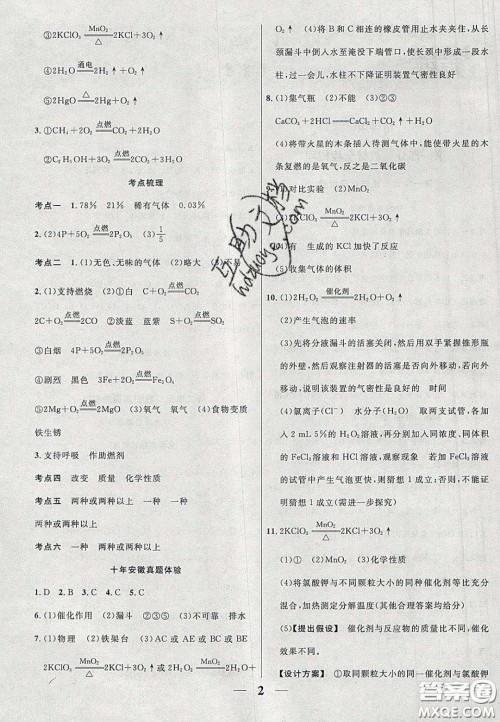 ③2KClO₃ MnO₂/△ 2KCl+3O₂↑
④2H₂O 通电 2H₂↑+O₂↑
⑤2HgO △ 2Hg+O₂↑
3. ①CH₄+2O₂ 点燃 CO₂+2H₂O
②C₂H₅OH+3O₂ 点燃 2CO₂+3H₂O
考点梳理
考点一 1.78% 21% 稀有气体 0.03%
2.(2)4P+5O₂ 点燃 2P₂O₅ (3)1/5
考点二 1.(1)无色、无味的气体 (2)略大 (3)不易
2.(1)支持燃烧 (2)①白 C+O₂ 点燃 CO₂
2C+O₂ 点燃 2CO ②淡蓝 蓝紫 S+O₂ 点燃 SO₂
③白烟 4P+5O₂ 点燃 2P₂O₅
④剧烈 黑色 3Fe+2O₂ 点燃 Fe₃O₄
⑤2Mg+O₂ 点燃 2MgO (3)氧气 氧气 (4)食物变质
铁生锈
3.支持呼吸 作助燃剂
考点四 改变 质量 化学性质
考点五 两种或两种以上 一种 一种
两种或两种以上
考点六 一种 两种或两种以上
十年安徽真题体验
1.D 2.B 3.C 4.C 5.C
6.(1)催化作用 (2)漏斗 ②③⑤ (3)不可靠 排水
7.(1)物理 (2)铁架台 (3)AC或AE或BC或BE
(4)将B和C相连的橡皮管用止水夹夹住,从
长颈漏斗中倒入水至淹没下端管口,使长颈中形成一段水
柱,过一会儿,水柱不下降证明装置气密性良好
8.(1)集气瓶 (2)不能 (3)②③
CaCO₃+2HCl══CaCl₂+CO₂↑+H₂O
(4)将带火星的木条插入待测气体中,能使带火星的木
条复燃的是氧气,反之是二氧化碳
对比实验 (2)MnO₂
2KClO₃ MnO₂/△ 2KCl+3O₂↑
有 生成的KCl加快了反应
(5)收集气体的体积
10.(1)2H₂O₂ 催化剂 2H₂O+O₂↑
(2)产生气泡的速率
(3)先将分液漏斗的活塞关闭,然后用双手紧握锥形瓶
的外壁,然后观察注射器的活塞是否向外移动,若向外
移动,说明该装置的气密性是良好的 时间
(4)氯离子(Cl⁻) 水分子(H₂O) 取两支试管,各加
入2 mL 5%的H₂O₂溶液,再分别加入同浓度、同体积
的FeCl₃溶液和HCl溶液,观察现象 若因加FeCl₃溶液
的试管中产生气泡更快,则能证明猜想1成立,不能证
明猜想1成立(需进一步探究)
11.2KClO₃ MnO₂/△ 2KCl+3O₂↑
(1)① (2)MnO₂ (3)化学性质
(4)将氯酸钾与不同颗粒大小的同一种催化剂等质量充
分混合加热,测定其反应温度(其他合理答案均可)
(5)【提出假设】 催化剂与反应物的质量比不同,催化
效果不同。
【设计方案】 ①取同颗粒大小的同一催化剂与氯酸钾
2
互助文档
hdzuoye.com
答案圈
MXQE.COM